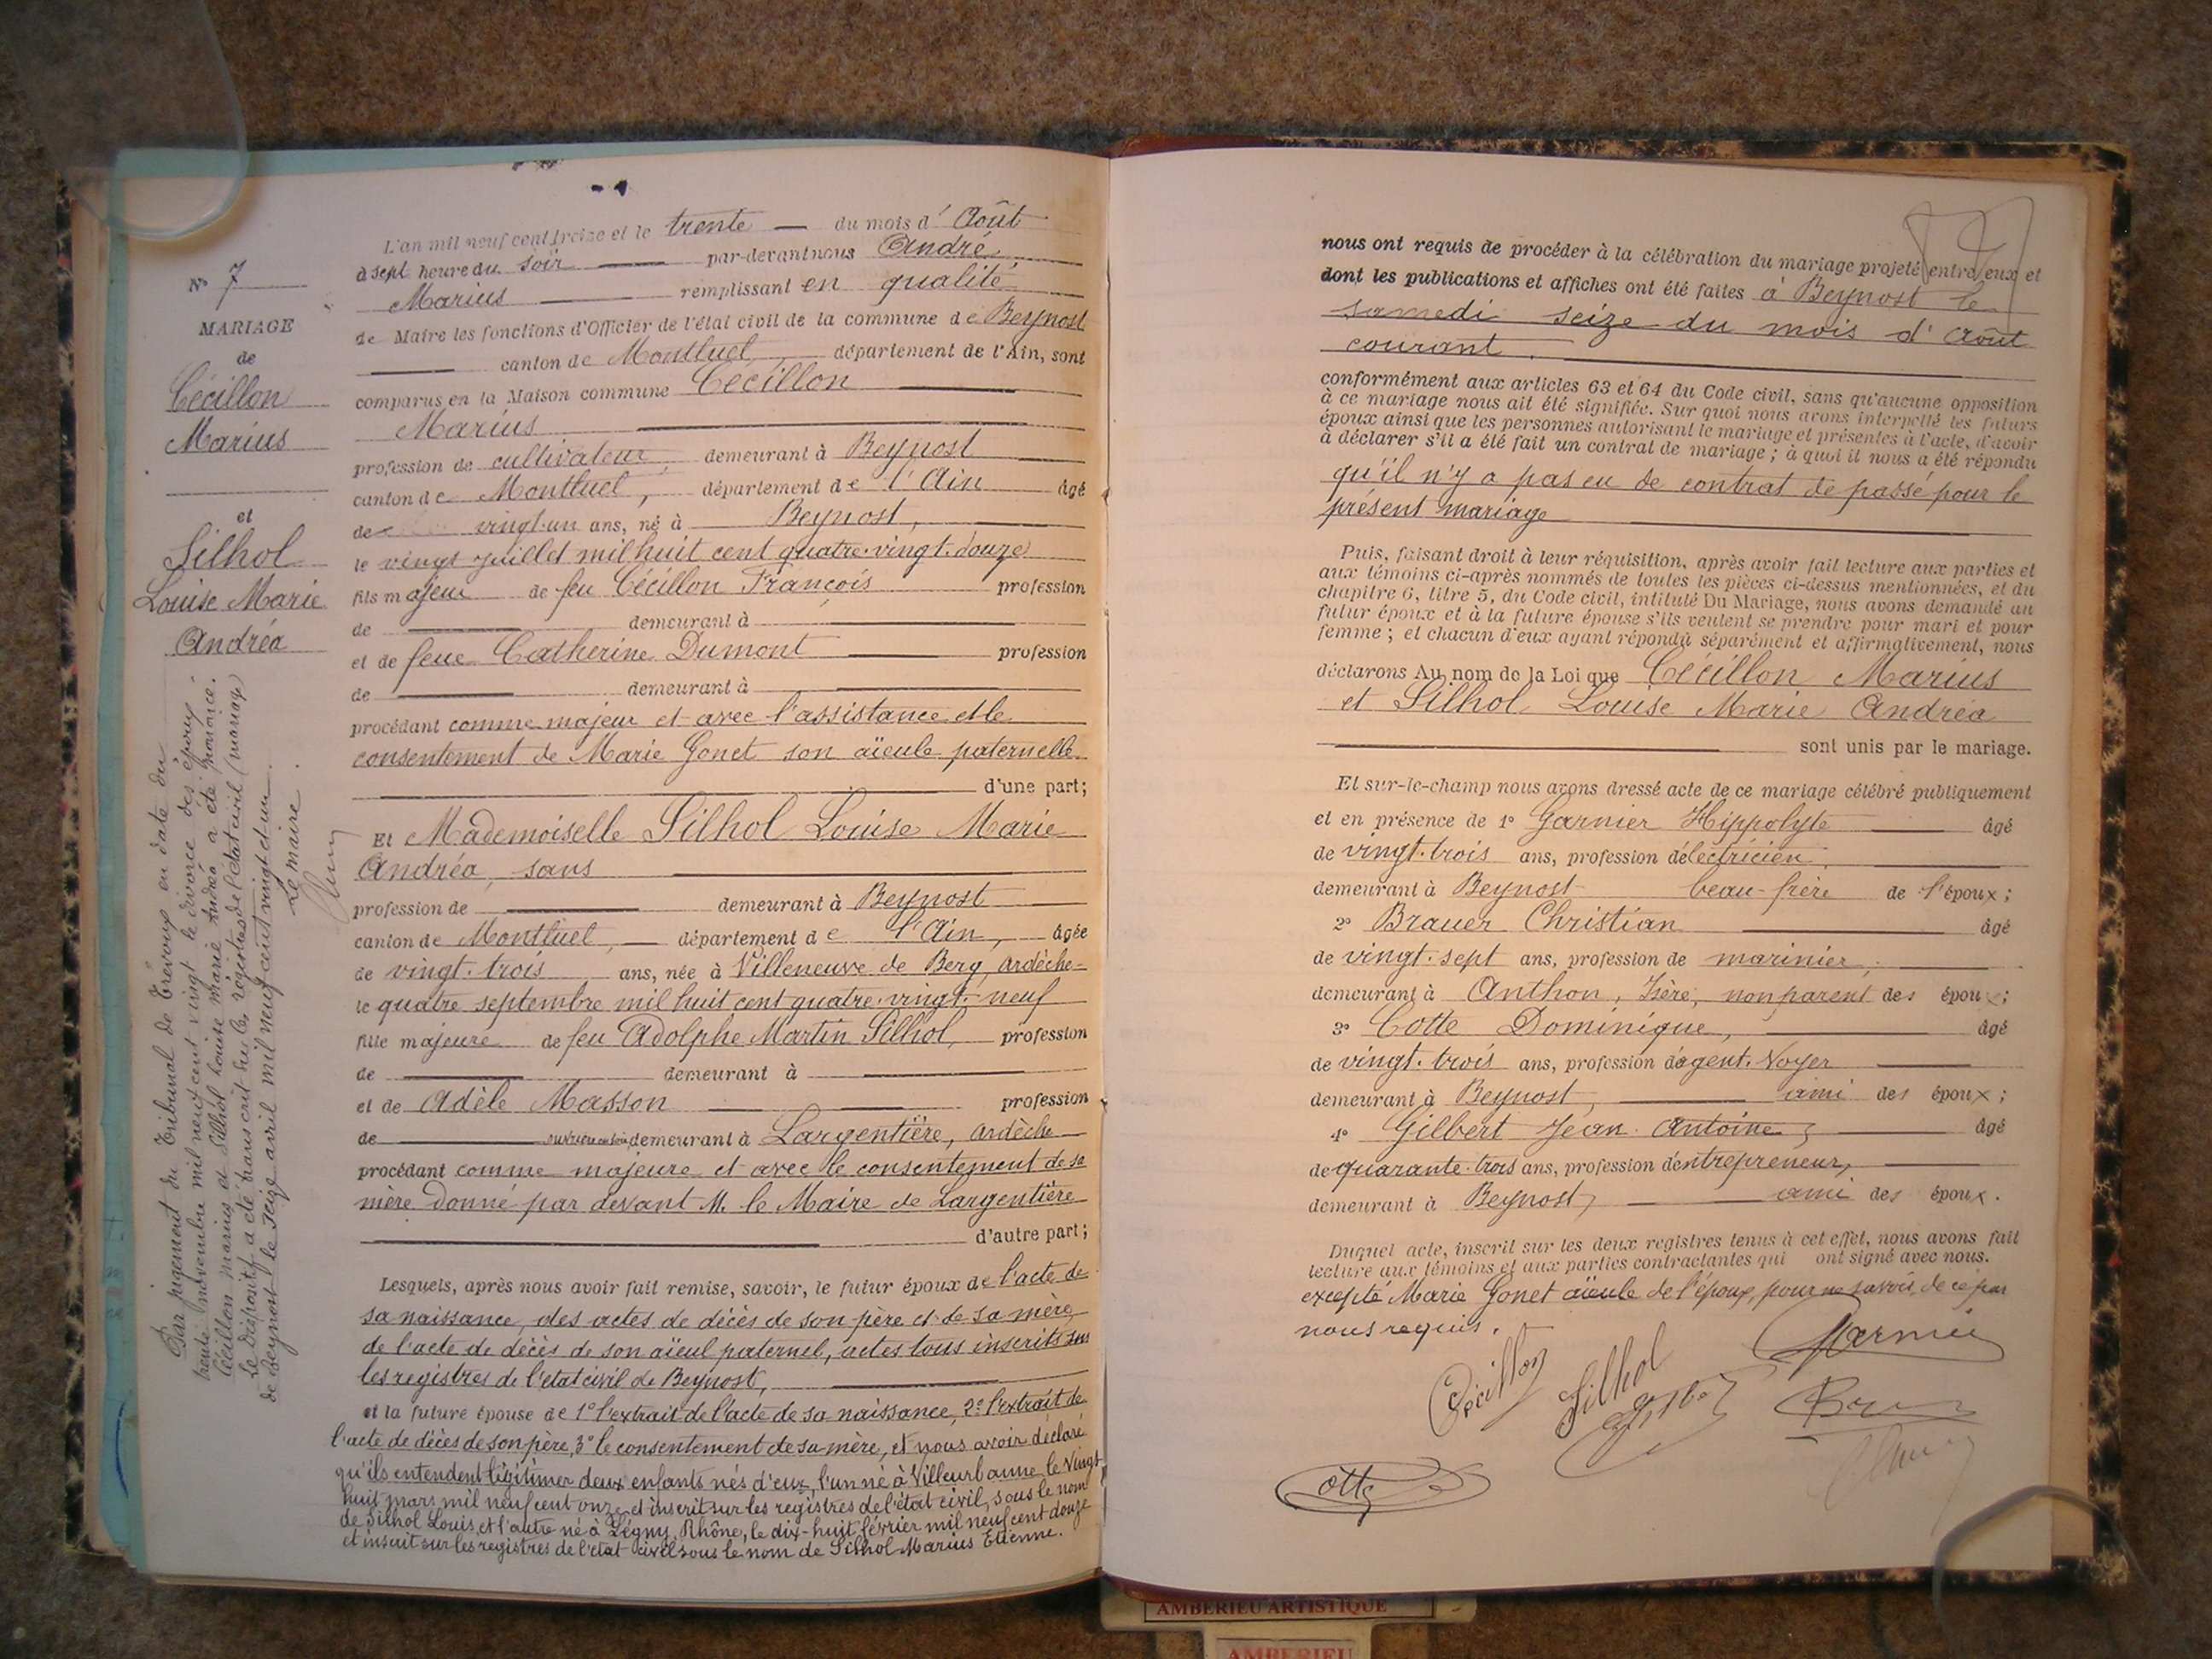 N° 7
MARIAGE
de
Cécillon
Marius
et
Silhol
Louise Marie
Andréa
Par jugement du Tribunal de Trévoux en date du
trente novembre mil neuf cent vingt le divorce des époux
Cécillon Marius et Silhol Louise Marie Andréa a été prononcé.
Le dispositif a été transcrit sur les registres de l'état civil (mariage)
de Beynost le seize avril mil neuf cent vingt et un.
Le maire.
L'an mil neuf cent treize et le trente du mois d'Août
à sept heure du soir par-devant nous André
Marius remplissant en qualité
de Maire les fonctions d'Officier de l'état civil de la commune de Beynost
canton de Montluel, département de l'Ain, sont
comparus en la Maison commune Cécillon
Marius
profession de cultivateur, demeurant à Beynost
canton de Montluel, département de l'Ain âgé
de vingt-un ans, né à Beynost,
le vingt juillet mil huit cent quatre-vingt-douze
fils majeur de feu Cécillon François profession
de demeurant à
et de feue Catherine Dumont profession
de demeurant à
procédant comme majeur et avec l'assistance et le
consentement de Marie Gonet son aïeule paternelle
d'une part;
Et Mademoiselle Silhol Louise Marie
Andréa, sans
profession de demeurant à Beynost
canton de Montluel, département de l'Ain, âgée
de vingt-trois ans, née à Villeneuve de Berg, Ardèche
le quatre septembre mil huit cent quatre-vingt-neuf
fille majeure de feu Adolphe Martin Silhol, profession
de demeurant à
et de Adèle Masson profession
de demeurant à Largentière, Ardèche
procédant comme majeure et avec le consentement de sa
mère donné par devant M. le Maire de Largentière
d'autre part;
Lesquels, après nous avoir fait remise, savoir, le futur époux de l'acte de
sa naissance, des actes de décès de son père et de sa mère,
de l'acte de décès de son aïeul paternel, actes tous inscrits sur
les registres de l'état civil de Beynost,
et la future épouse de 1° l'extrait de l'acte de sa naissance, 2° l'extrait de
l'acte de décès de son père, 3° le consentement de sa mère, et nous avoir déclaré
qu'ils entendent légitimer deux enfants nés d'eux, l'un né à Villeurbanne le vingt
huit mars mil neuf cent onze et inscrit sur les registres de l'état civil, sous le nom
de Silhol Louis, et l'autre né à Légny, Rhône, le dix-huit février mil neuf cent douze
et inscrit sur les registres de l'état civil sous le nom de Silhol Marius Etienne.
nous ont requis de procéder à la célébration du mariage projeté entre eux et
dont les publications et affiches ont été faites à Beynost le
samedi seize du mois d'Août
courant.
conformément aux articles 63 et 64 du Code civil, sans qu'aucune opposition
à ce mariage nous ait été signifiée. Sur quoi nous avons interpellé les futurs
époux ainsi que les personnes autorisant le mariage et présentes à l'acte, d'avoir
à déclarer s'il a été fait un contrat de mariage; à quoi il nous a été répondu
qu'il n'y a pas eu de contrat de passé pour le
présent mariage
Puis, faisant droit à leur réquisition, après avoir fait lecture aux parties et
aux témoins ci-après nommés de toutes les pièces ci-dessus mentionnées, et du
chapitre 6, titre 5, du Code civil, intitulé Du Mariage, nous avons demandé au
futur époux et à la future épouse s'ils veulent se prendre pour mari et pour
femme; et chacun d'eux ayant répondu séparément et affirmativement, nous
déclarons Au nom de la Loi que Cécillon Marius
et Silhol Louise Marie Andréa
sont unis par le mariage.
Et sur-le-champ nous avons dressé acte de ce mariage célébré publiquement
et en présence de 1° Garnier Hippolyte âgé
de vingt-trois ans, profession d'électricien,
demeurant à Beynost beau-frère de l'époux;
2° Brauer Christian âgé
de vingt-sept ans, profession de marinier,
demeurant à Anthon, Isère, non parent des époux;
3° Cotte Dominique, âgé
de vingt-trois ans, profession d'agent-Voyer
demeurant à Beynost, ami des époux;
4° Gilbert Jean Antoine, âgé
de quarante-trois ans, profession d'entrepreneur,
demeurant à Beynost, ami des époux.
Duquel acte, inscrit sur les deux registres tenus à cet effet, nous avons fait
lecture aux témoins et aux parties contractantes qui ont signé avec nous.
excepté Marie Gonet aïeule de l'époux, pour ne savoir, de ce par
nous requis.
Garnier
Cécillon
Silhol
Cotte
AMBERIEU ARTISTIQUE
AMBERIEU